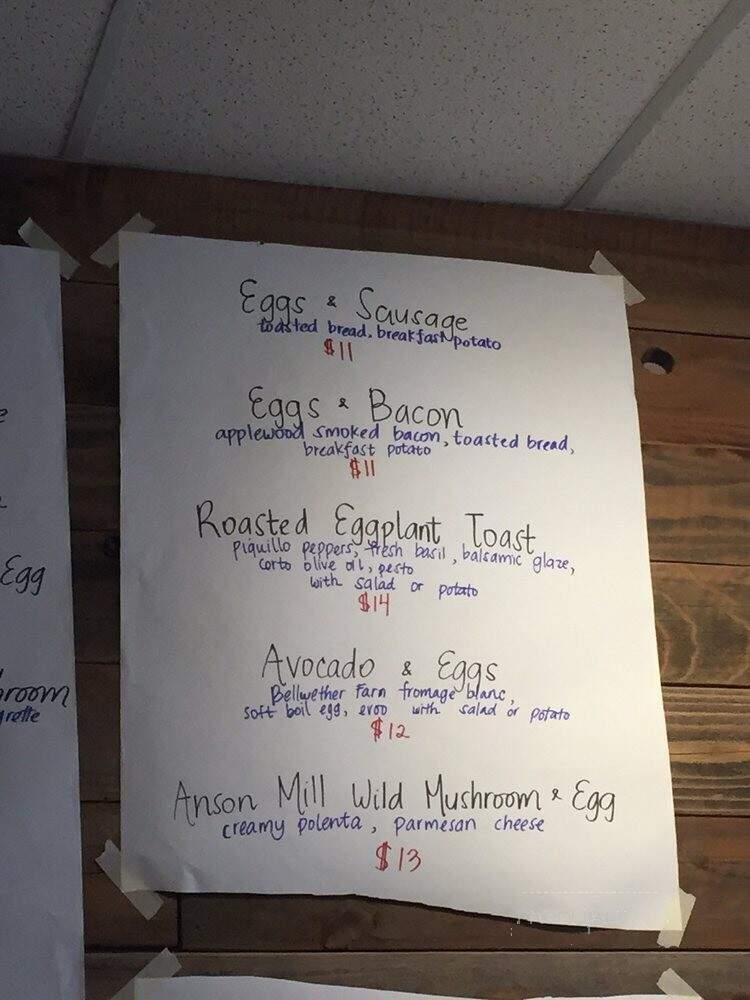 Eggs & Sausage
toasted bread, breakfast potato
$11
Eggs & Bacon
applewood smoked bacon, toasted bread,
breakfast potato
$11
Roasted Eggplant Toast
piquillo peppers, fresh basil, balsamic glaze,
corto olive oil, pesto
with salad or potato
$14
Avocado & Eggs
Bellwether Farn fromage blanc,
soft boil egg, evoo with salad or potato
$12
Anson Mill Wild Mushroom & Egg
creamy polenta, parmesan cheese
$13
Egg
room
grette